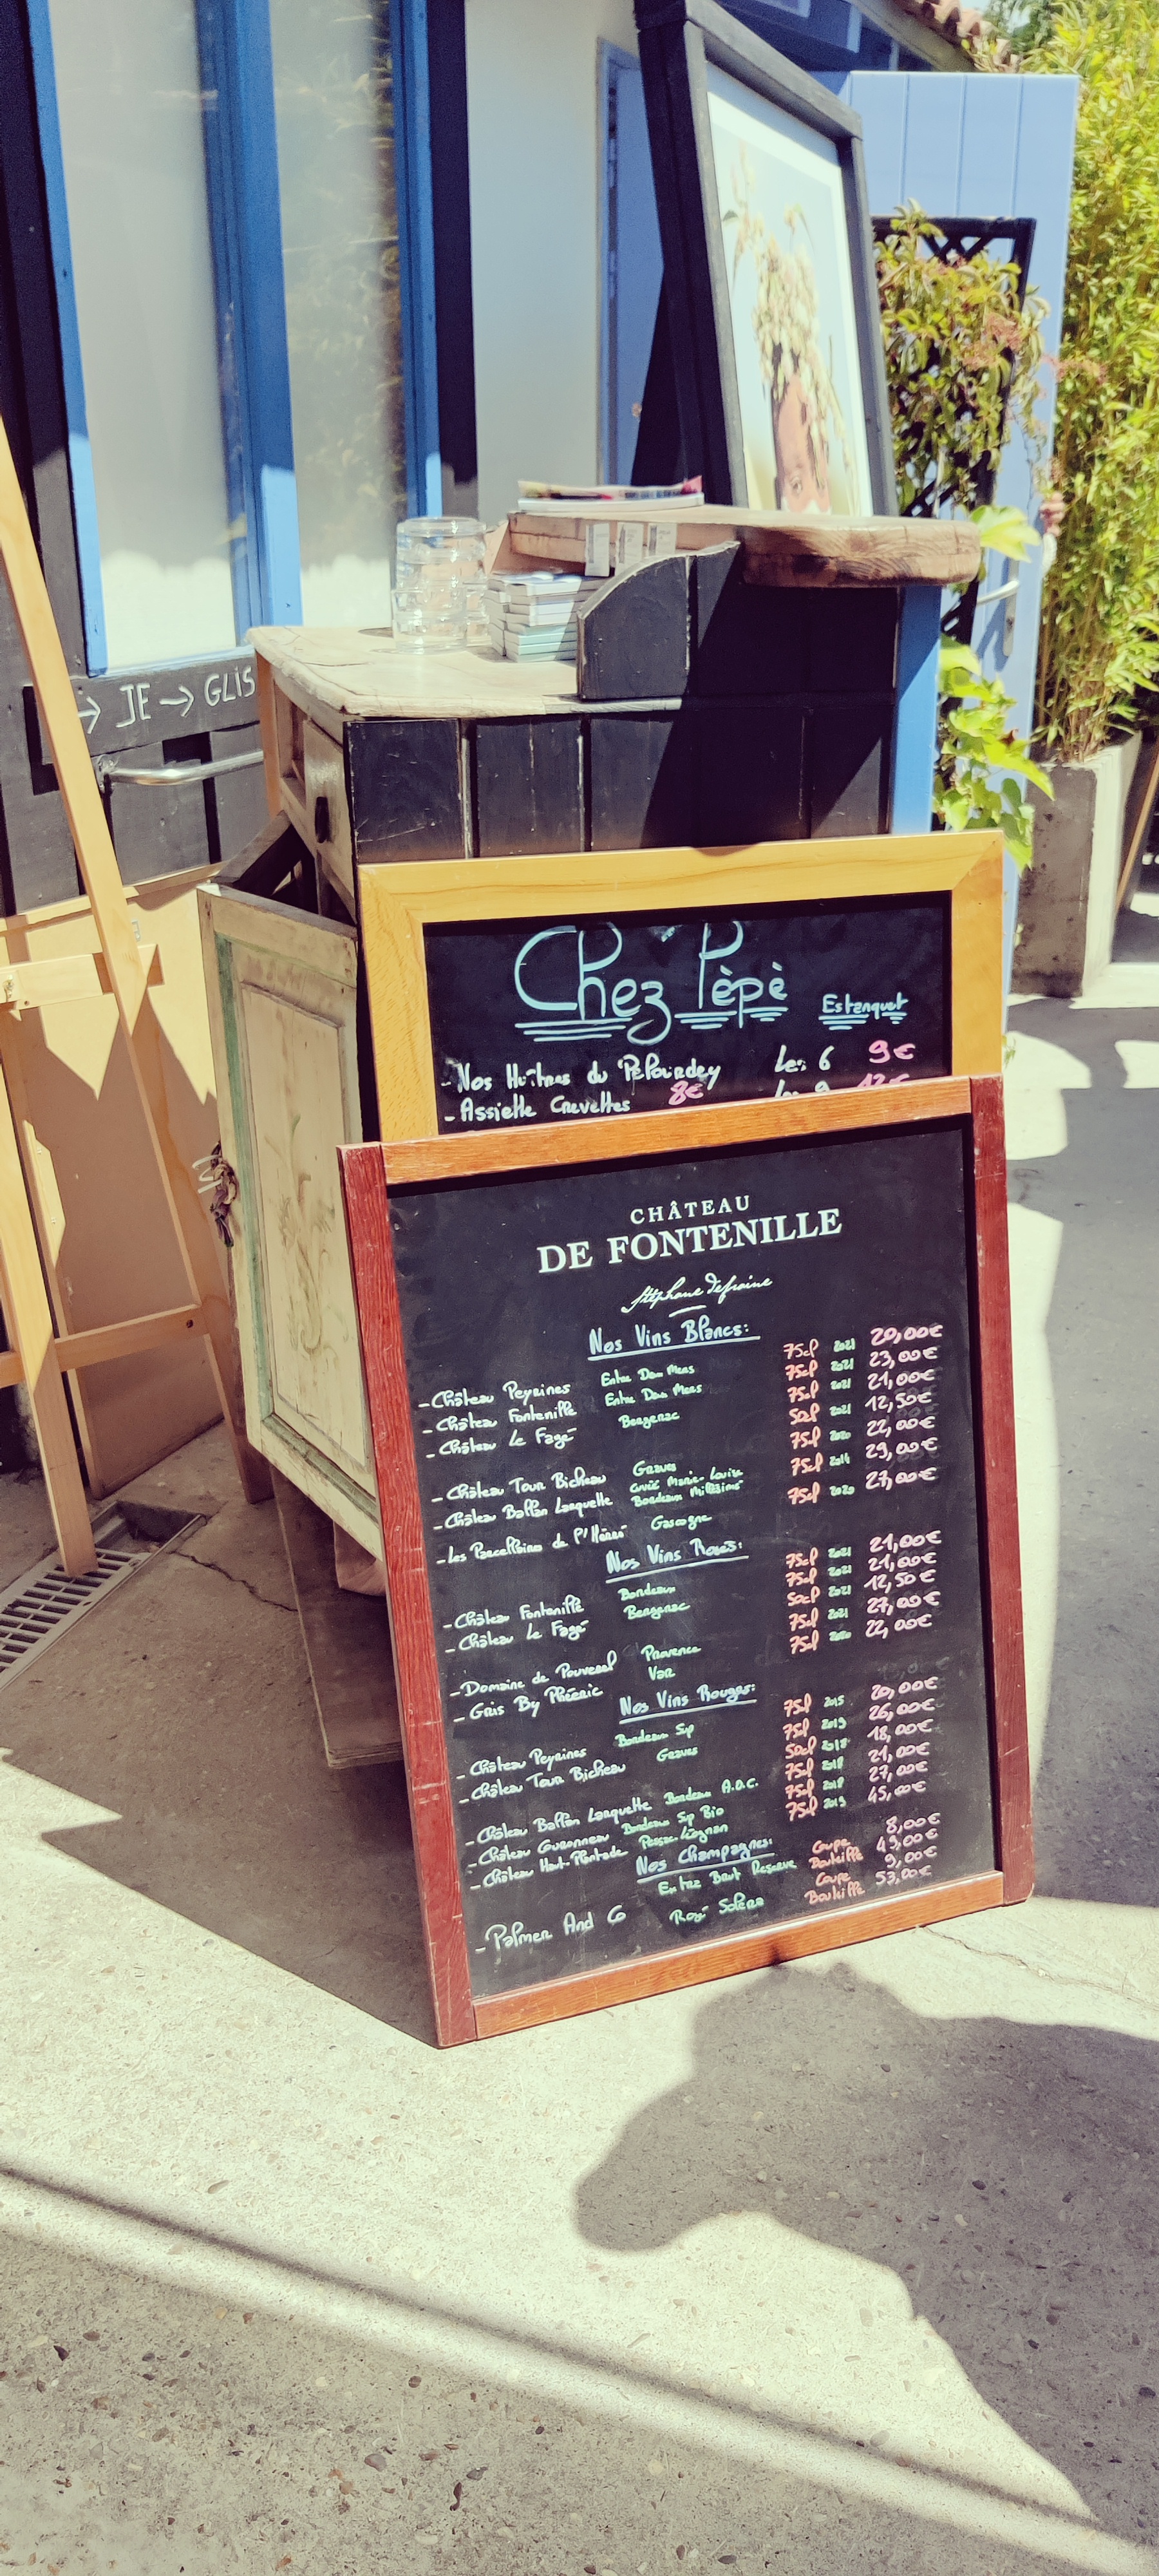 → JE → GLIS
Chez Pèpè Estanquet
- Nos Huîtres du Les 6 9€
- Assiette Crevettes 8€ 12€
CHÂTEAU
DE FONTENILLE
Stéphane Defraine
Nos Vins Blancs:
- Château Peyrines Entre Deux Mers 75cl 2021 20,00€
- Château Fontenille Entre Deux Mers 75cl 2021 23,00€
- Château Le Fagé Bergerac 75cl 2021 21,00€
50cl 2021 12,50€
- Château Tour Bicheau Graves 75cl 2020 22,00€
- Château Ballan Larquette Cuvée Marie-Louise 75cl 2014 29,00€
Bordeaux Millésime
- Les Parcellaires de l'Herré Gascogne 75cl 2020 27,00€
Nos Vins Rosés:
- Château Fontenille Bordeaux 75cl 2021 21,00€
- Château Le Fagé Bergerac 75cl 2021 21,00€
50cl 2021 12,50€
- Domaine de Provence 75cl 2021 27,00€
- Gris By Phéeric Var 75cl 2020 22,00€
Nos Vins Rouges:
- Château Peyrines Bordeaux Sup 75cl 2015 20,00€
- Château Tour Bicheau Graves 75cl 2019 26,00€
50cl 2018 18,00€
- Château Ballan Larquette Bordeaux A.O.C. 75cl 2018 21,00€
- Château Couronneau Bordeaux Sup Bio 75cl 2018 27,00€
- Château Haut-Plantade Pessac Léognan 75cl 2019 45,00€
Nos Champagnes:
- Palmer And Co Brut Reserve Coupe 8,00€
Bouteille 49,00€
Rosé Soléra Coupe 9,00€
Bouteille 53,00€